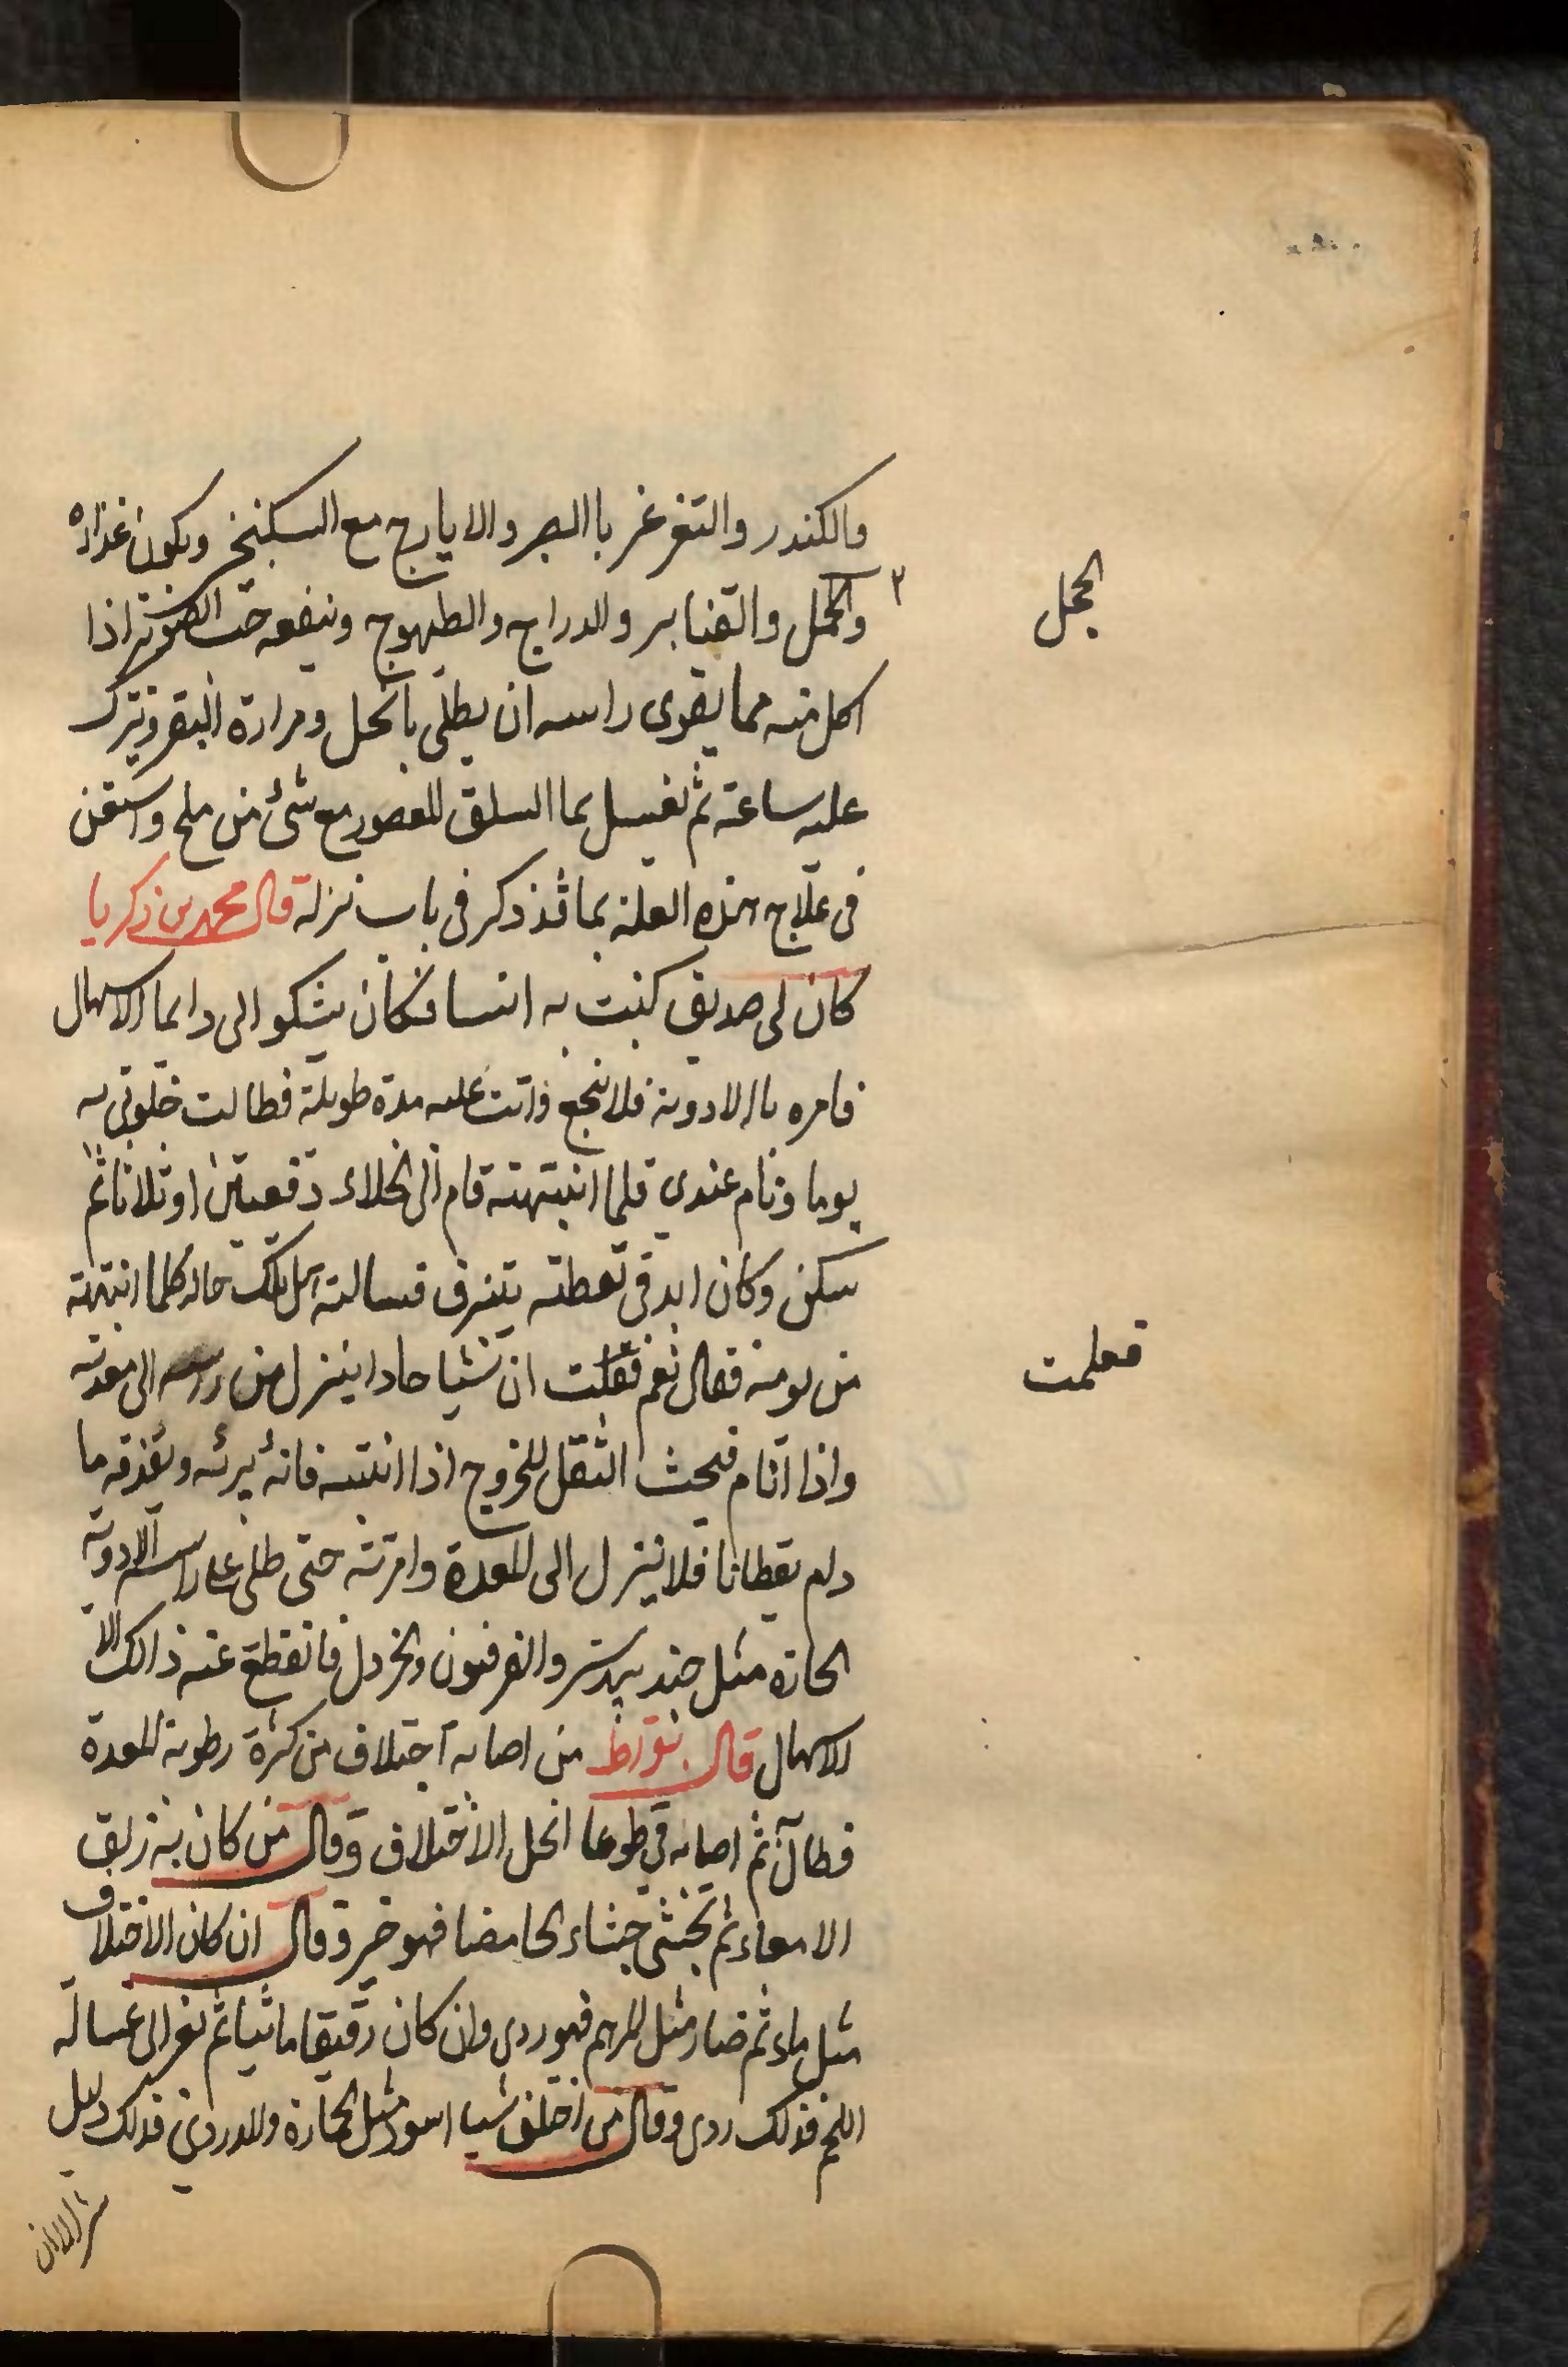 والكندر والتغرغر باالصبر والايارج مع السكنجبين ويكون غذاؤه
والحجل والقنابر والدراج والطيهوج وينفعه حب الصنوبر اذا
الحجل
اكل منه مما يقوى راسه ان يطلى بالخل ومرارة البقر ويترك
عليه ساعة ثم تغسل بما السلق المعصور مع شئ من ملح واستعن
فى علاج هذه العلة بما قد ذكر فى باب نزلة قال محمد بن زكريا
كان لى صديق كنت به انسا فكان يشكو الى دايما الاسهال
فامره باالادوية فلا ينجع واتت عليه مدة طويلة فطالت خلوتى به
يوما ونام عندى فلما انتبهته قام الى الخلاء دفعتين او ثلاثا ثم
سكن وكان ابد فى يقطته يتنرف فسالته هل تلك حاله كلما انتبهته
من نومه فقال نعم فقلت ان شيا حادا ينزل من راسه الى معدته
فعلمت
واذا انام فيحث الثقل للخروج اذا انتبه فانه يرئه ويقذفه ما
دام يقطانا فلا ينزل الى المعدة وامرته حتى طلى على راسه الادوية
الحارة مثل جند بيدستر والفرفيون والخردل فانقطع عنه ذالك الا
الاسهال قال بقراط من اصابه اختلاف من كثرة رطوبة المعدة
فطال ثم اصابه قى طوعا انحل الاختلاف وقال من كان به زلق
الامعاء ثم تجشى جشاء الحامضا فهو خير وقال ان كان الاختلاف
مثل ماء ثم صار مثل المرهم فهو ردى وان كان رقيقا مائيا ثم تغر الى غسالة
اللحم فذلك ردى وقال من اختلف شيا اسود مثل الحمارة والدردى فذلك دليل